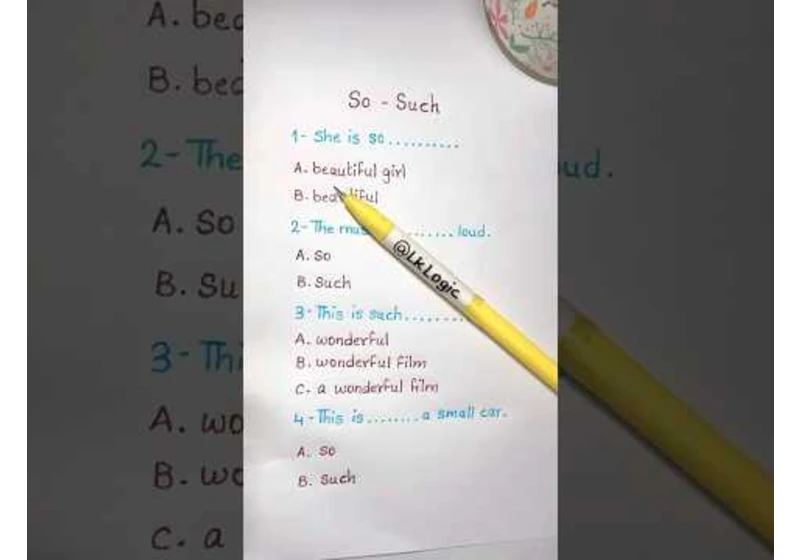 So - Such
1- She is so..........
A. beautiful girl
B. beautiful
2- The ........ loud.
A. So
B. Such
@LkLogic
3- This is such.........
A. wonderful
B. wonderful film
C. a wonderful film
4- This is........a small car.
A. so
B. such